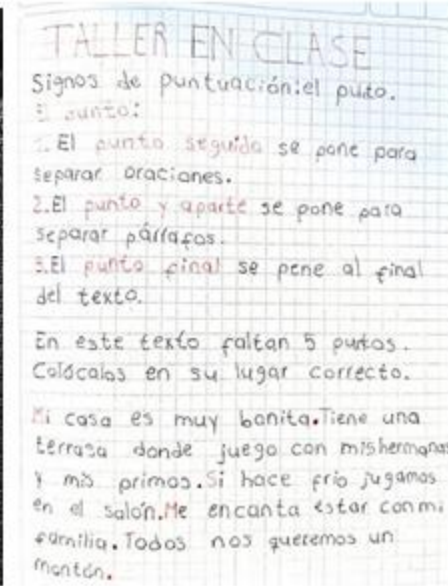 TALLER EN CLASE
Signos de puntuación:el puto.
El punto:
1. El punto seguido se pone para
separar oraciones.
2.El punto y aparte se pone para
separar párrafos.
3.El punto final se pene al final
del texto.
En este texto faltan 5 puntos.
Colócalos en su lugar correcto.
Mi casa es muy bonita.Tiene una
terraza donde juego con mishermanas
y mis primos.Si hace frío jugamos
en el salón.Me encanta estar conmi
familia.Todos nos queremos un
montón.